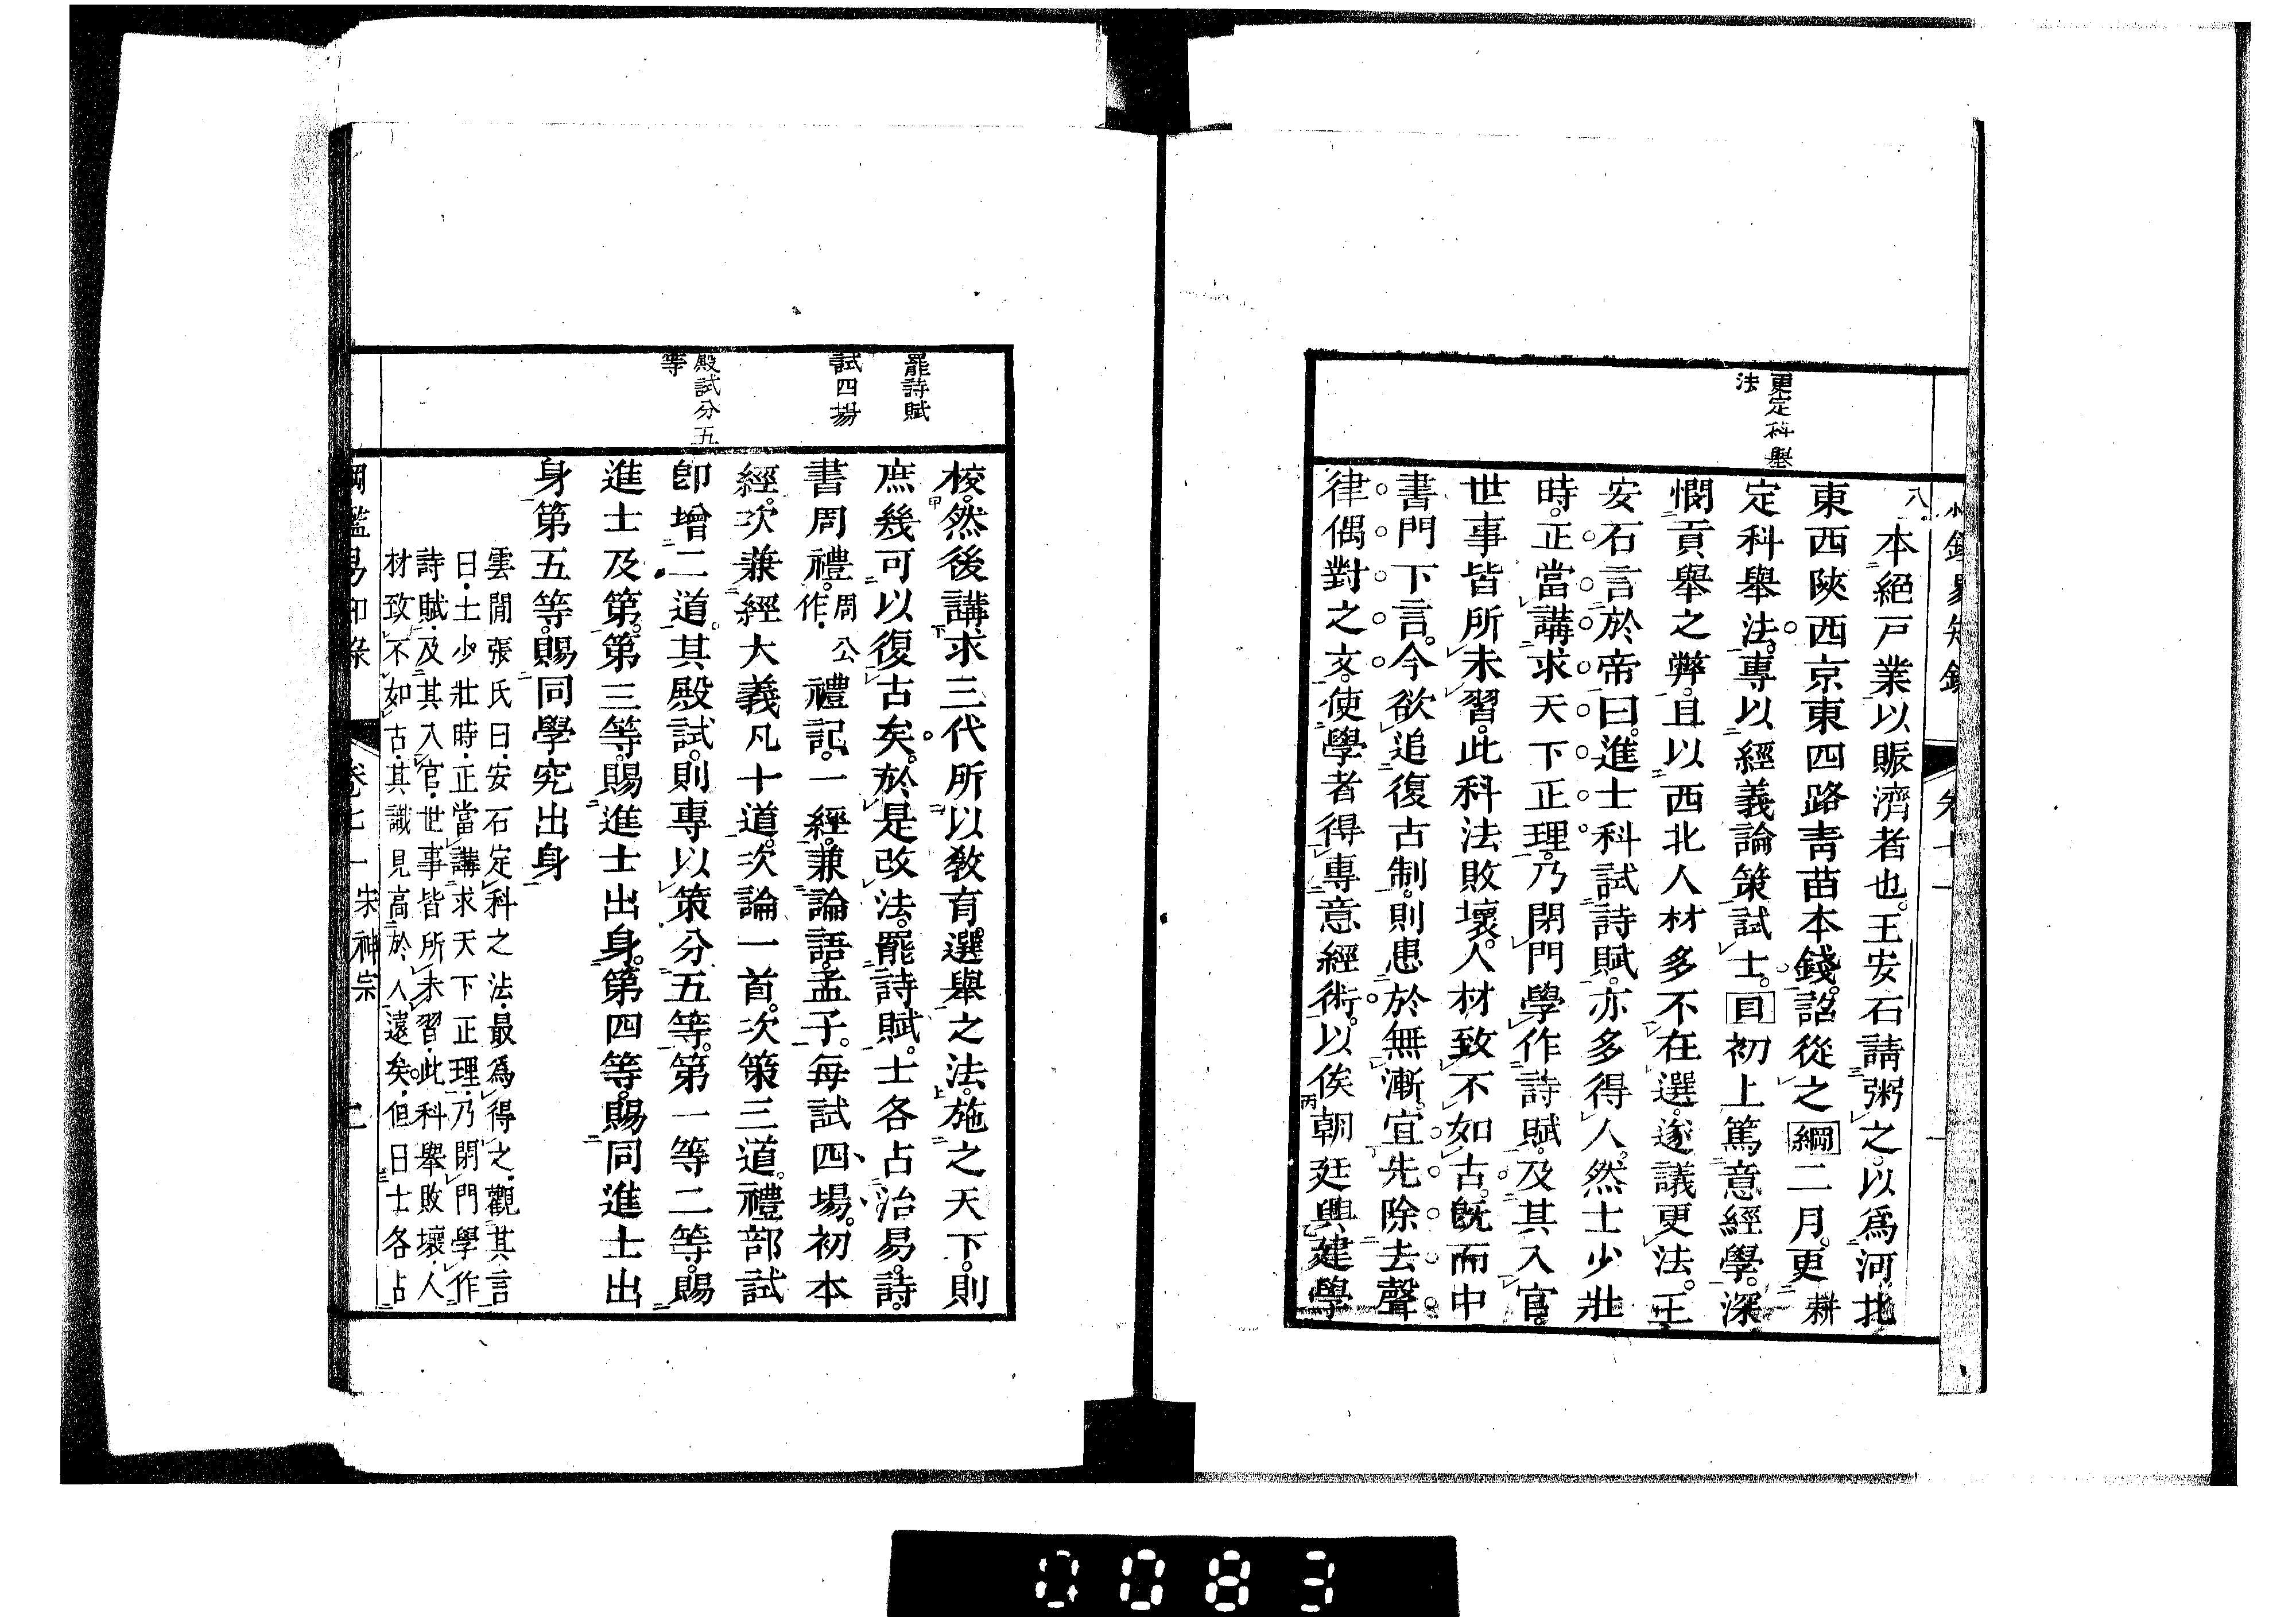 更定科舉
法
本絕戸業以賑濟者也。王安石請粥之。以爲河北
東西陝西京東四路靑苗本錢。詔從之綱二月。更耕
定科舉法。專以經義論策試士。目初上篤意經學。深
憫貢舉之弊。且以西北人材多不在選。遂議更法。王
安石言於帝曰。進士科試詩賦。亦多得人。然士少壯
時。正當講求天下正理。乃閉門學作詩賦。及其入官。
世事皆所未習。此科法敗壞。人材致不如古。旣而中
書門下言。今欲追復古制。則患於無漸。宜先除去聲
律偶對之文。使學者得專意經術。以俟朝廷興建學
罷詩賦
試四場
殿試分五
等
校。然後講求三代所以敎育。選舉之法。施之天下。則
庶幾可以復古矣。於是改法。罷詩賦。士各占治易。詩。
書周禮。周公作。禮記。一經。兼論語。孟子。每試四場。初本
經。次兼經大義凡十道。次論一首。次策三道。禮部試
卽增二道。其殿試。則專以策分五等。第一等二等。賜
進士及第。第三等。賜進士出身。第四等。賜同進士出
身第五等。賜同學究出身
雲閒張氏曰。安石定科之法。最爲得之。觀其言
曰。士少壯時。正當講求天下正理。乃閉門學作
詩賦。及其入官。世事皆所未習。此科舉敗壞。人
材致不如古。其識見高於人遠矣。但曰士各占
綱鑑易知錄 卷七一 宋神宗
0083